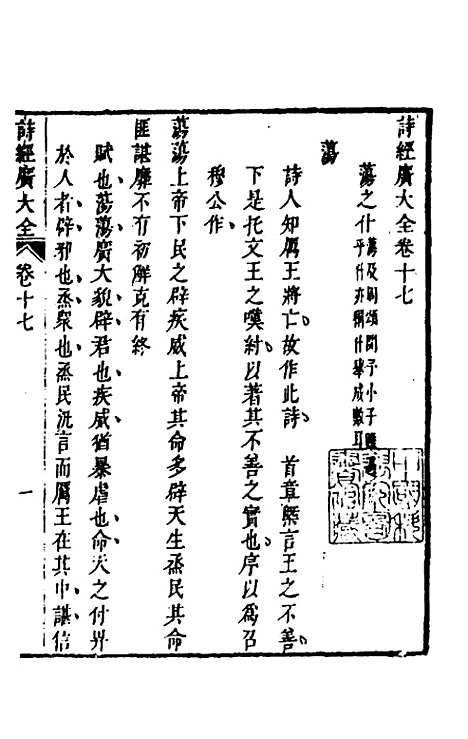 詩經廣大全卷十七
蕩之什蕩及周頌閔予小子
乎什亦稱什舉成數耳
蕩
詩人知厲王將亡故作此詩 首章槩言王之不善
下是托文王之嘆紂以著其不善之實也序以爲召
穆公作
蕩蕩上帝下民之辟疾威上帝其命多辟天生烝民其命
匪諶靡不有初鮮克有終
賦也蕩蕩廣大貌辟君也疾威猶暴虐也命天之付畀
於人者辟邪也烝衆也烝民汎言而厲王在其中諶信
詩經廣大全 卷十七 一